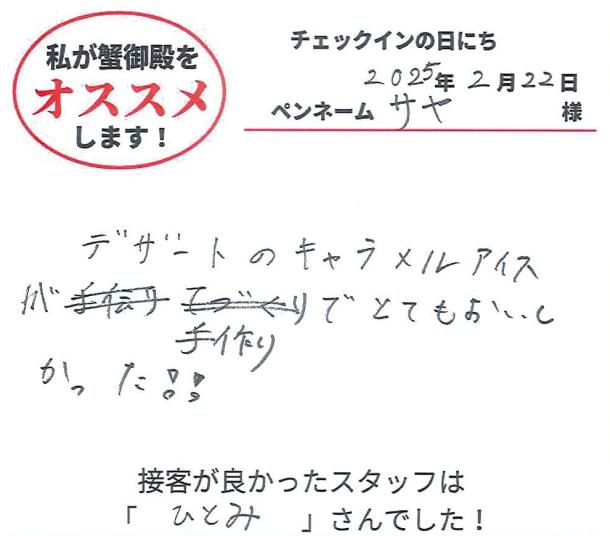 私が蟹御殿を
オススメ
します！
チェックインの日にち
2025年 2月22日
ペンネーム サヤ 様
デザートのキャラメルアイス
が手伝り てづくりでとてもおいし
手作り
かった!!
接客が良かったスタッフは
「 ひとみ 」さんでした！